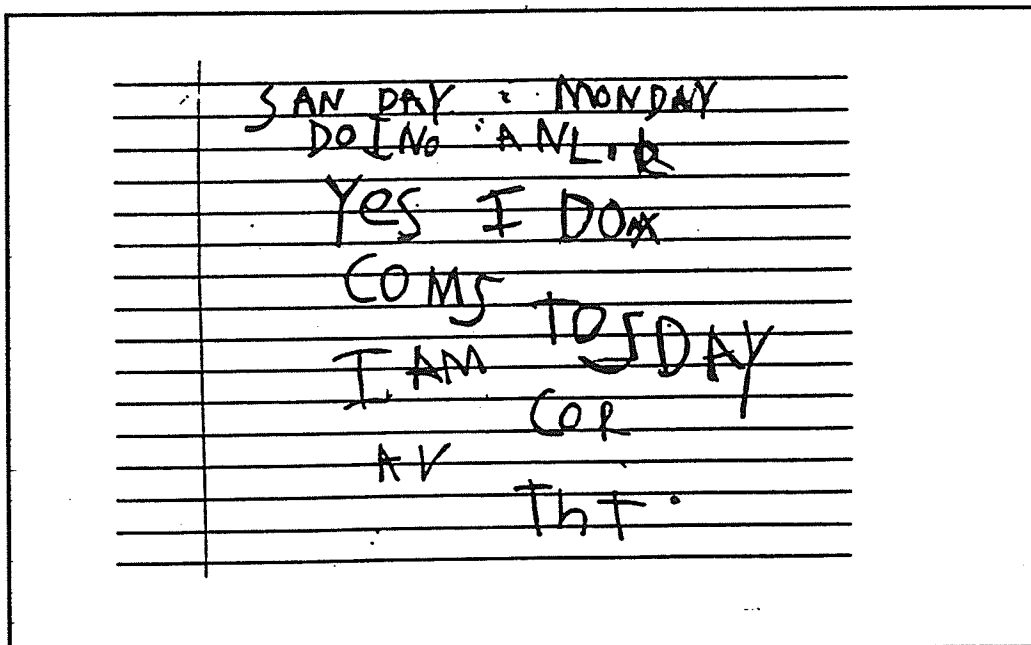 SAN DAY : MONDAY
DOINO ANL.R
YES I DOM
COMS
TOSDAY
I AM
COR
AV
ThT.